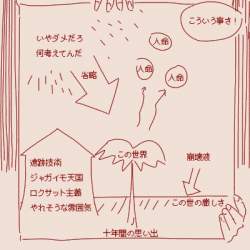 こういう事さ!
いやダメだろ
何考えてんだ
人命
人命
人命
省略
遺跡技術
ジャガイモ天国
ロクサット主義
やれそうな雰囲気
この世界
崩壊液
この世の厳しさ
十年間の思い出